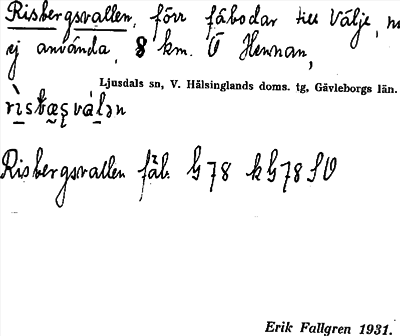 Risbergsvallen, förr fäbodar till Välje, nu
ej använda, 8 km. Ö Hennan,
Ljusdals sn, V. Hälsinglands doms. tg, Gävleborgs län.
Risbergsvallen fäb. G 78 kG78 SV
Erik Fallgren 1931.